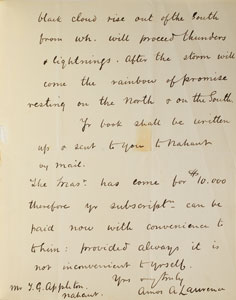 black cloud rise out of the South
from wh. will proceed thunders
& lightnings. After the storm will
come the rainbows of promise
resting on the North & on the South.
Yr book shall be written
up & sent to you to Nahant
by mail.
The Treasr. has come for $10.000
therefore yr subscriptn. can be
paid now with convenience to
them: provided always it is
not inconvenient to yrself.
Yrs truly
Mr T. G. Appleton Amos A. Lawrence
Nahant.